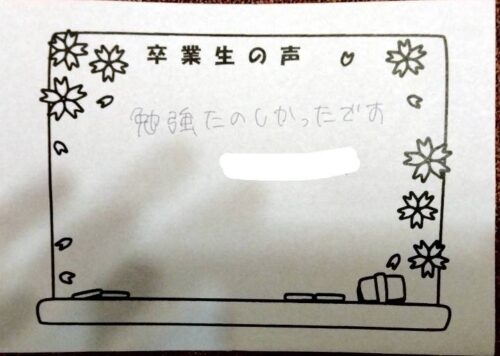 卒業生の声
勉強たのしかったです